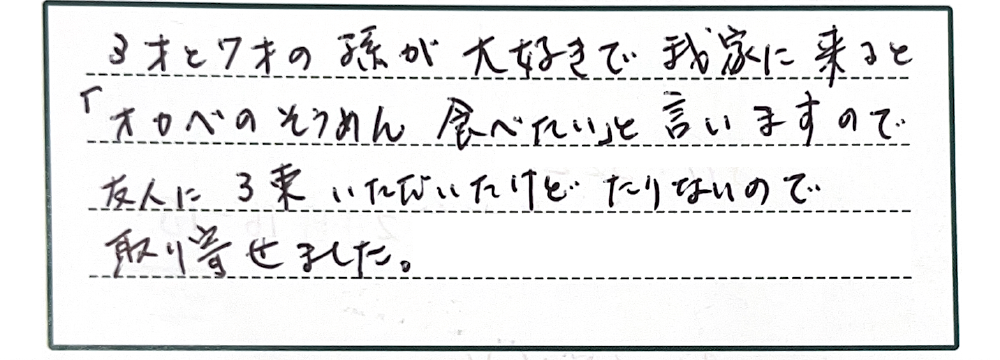 3才と7才の孫が大好きで我家に来ると
「オカベのそうめん食べたい」と言いますので
友人に3束いただいたけどたりないので
取り寄せました。